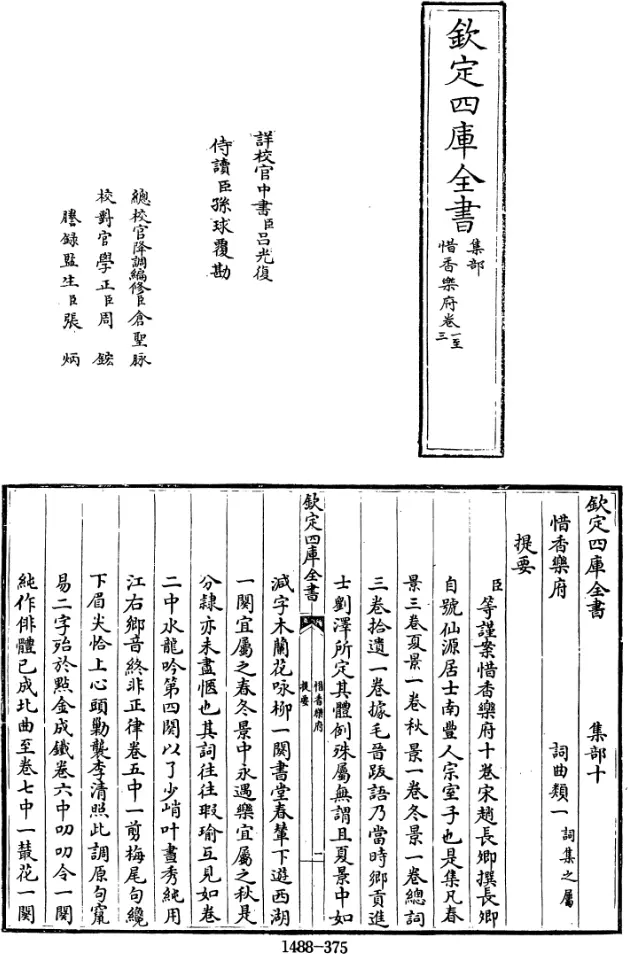 欽定四庫全書
集部
惜香樂府卷一至三
詳校官中書臣呂光復
侍讀臣孫球覆勘
總校官降調編修臣倉聖脉
校對官學正臣周鋐
謄錄監生臣張炳
欽定四庫全書 集部十
惜香樂府 詞曲類一 詞集之屬
提要
臣等謹案惜香樂府十卷宋趙長卿撰長卿
自號仙源居士南豐人宗室子也是集凡春
景三卷夏景一卷秋景一卷冬景一卷總詞
三卷拾遺一卷據毛晉跋語乃當時鄉貢進
士劉澤所定其體例殊屬無謂且夏景中如
欽定四庫全書
惜香樂府
提要
減字木蘭花咏柳一闋畫堂春輦下遊西湖
一闋宜屬之春冬景中永遇樂宜屬之秋是
分隸亦未盡愜也其詞往往瑕瑜互見如卷
二中水龍吟第四闋以了少峭叶晝秀純用
江右鄉音終非正律卷五中一剪梅尾句纔
下眉尖恰上心頭勦襲李清照此調原句竄
易二字殆於點金成鐵卷六中叨叨令一闋
純作俳體已成北曲至卷七中一叢花一闋
1488-375